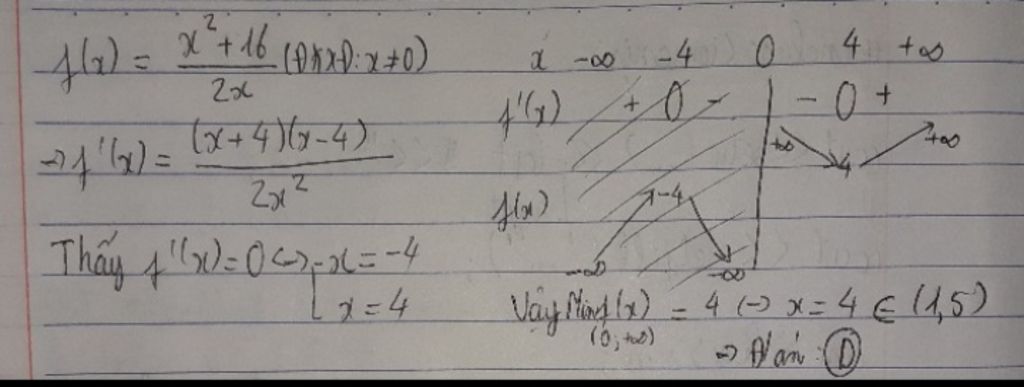 f(x) = (x² + 16)/(2x) (ĐKXĐ: x ≠ 0)
→ f'(x) = ((x+4)(x-4))/(2x²)
Thấy f'(x) = 0 <-> [ x = -4
x = 4
x -∞ -4 0 4 +∞
f'(x) + 0 - || - 0 +
f(x) -∞ -4 -∞ +∞ 4 +∞
Vậy Min f(x) = 4 <-> x = 4 ∈ (1,5)
(0;+∞)
→ Đ/án: D